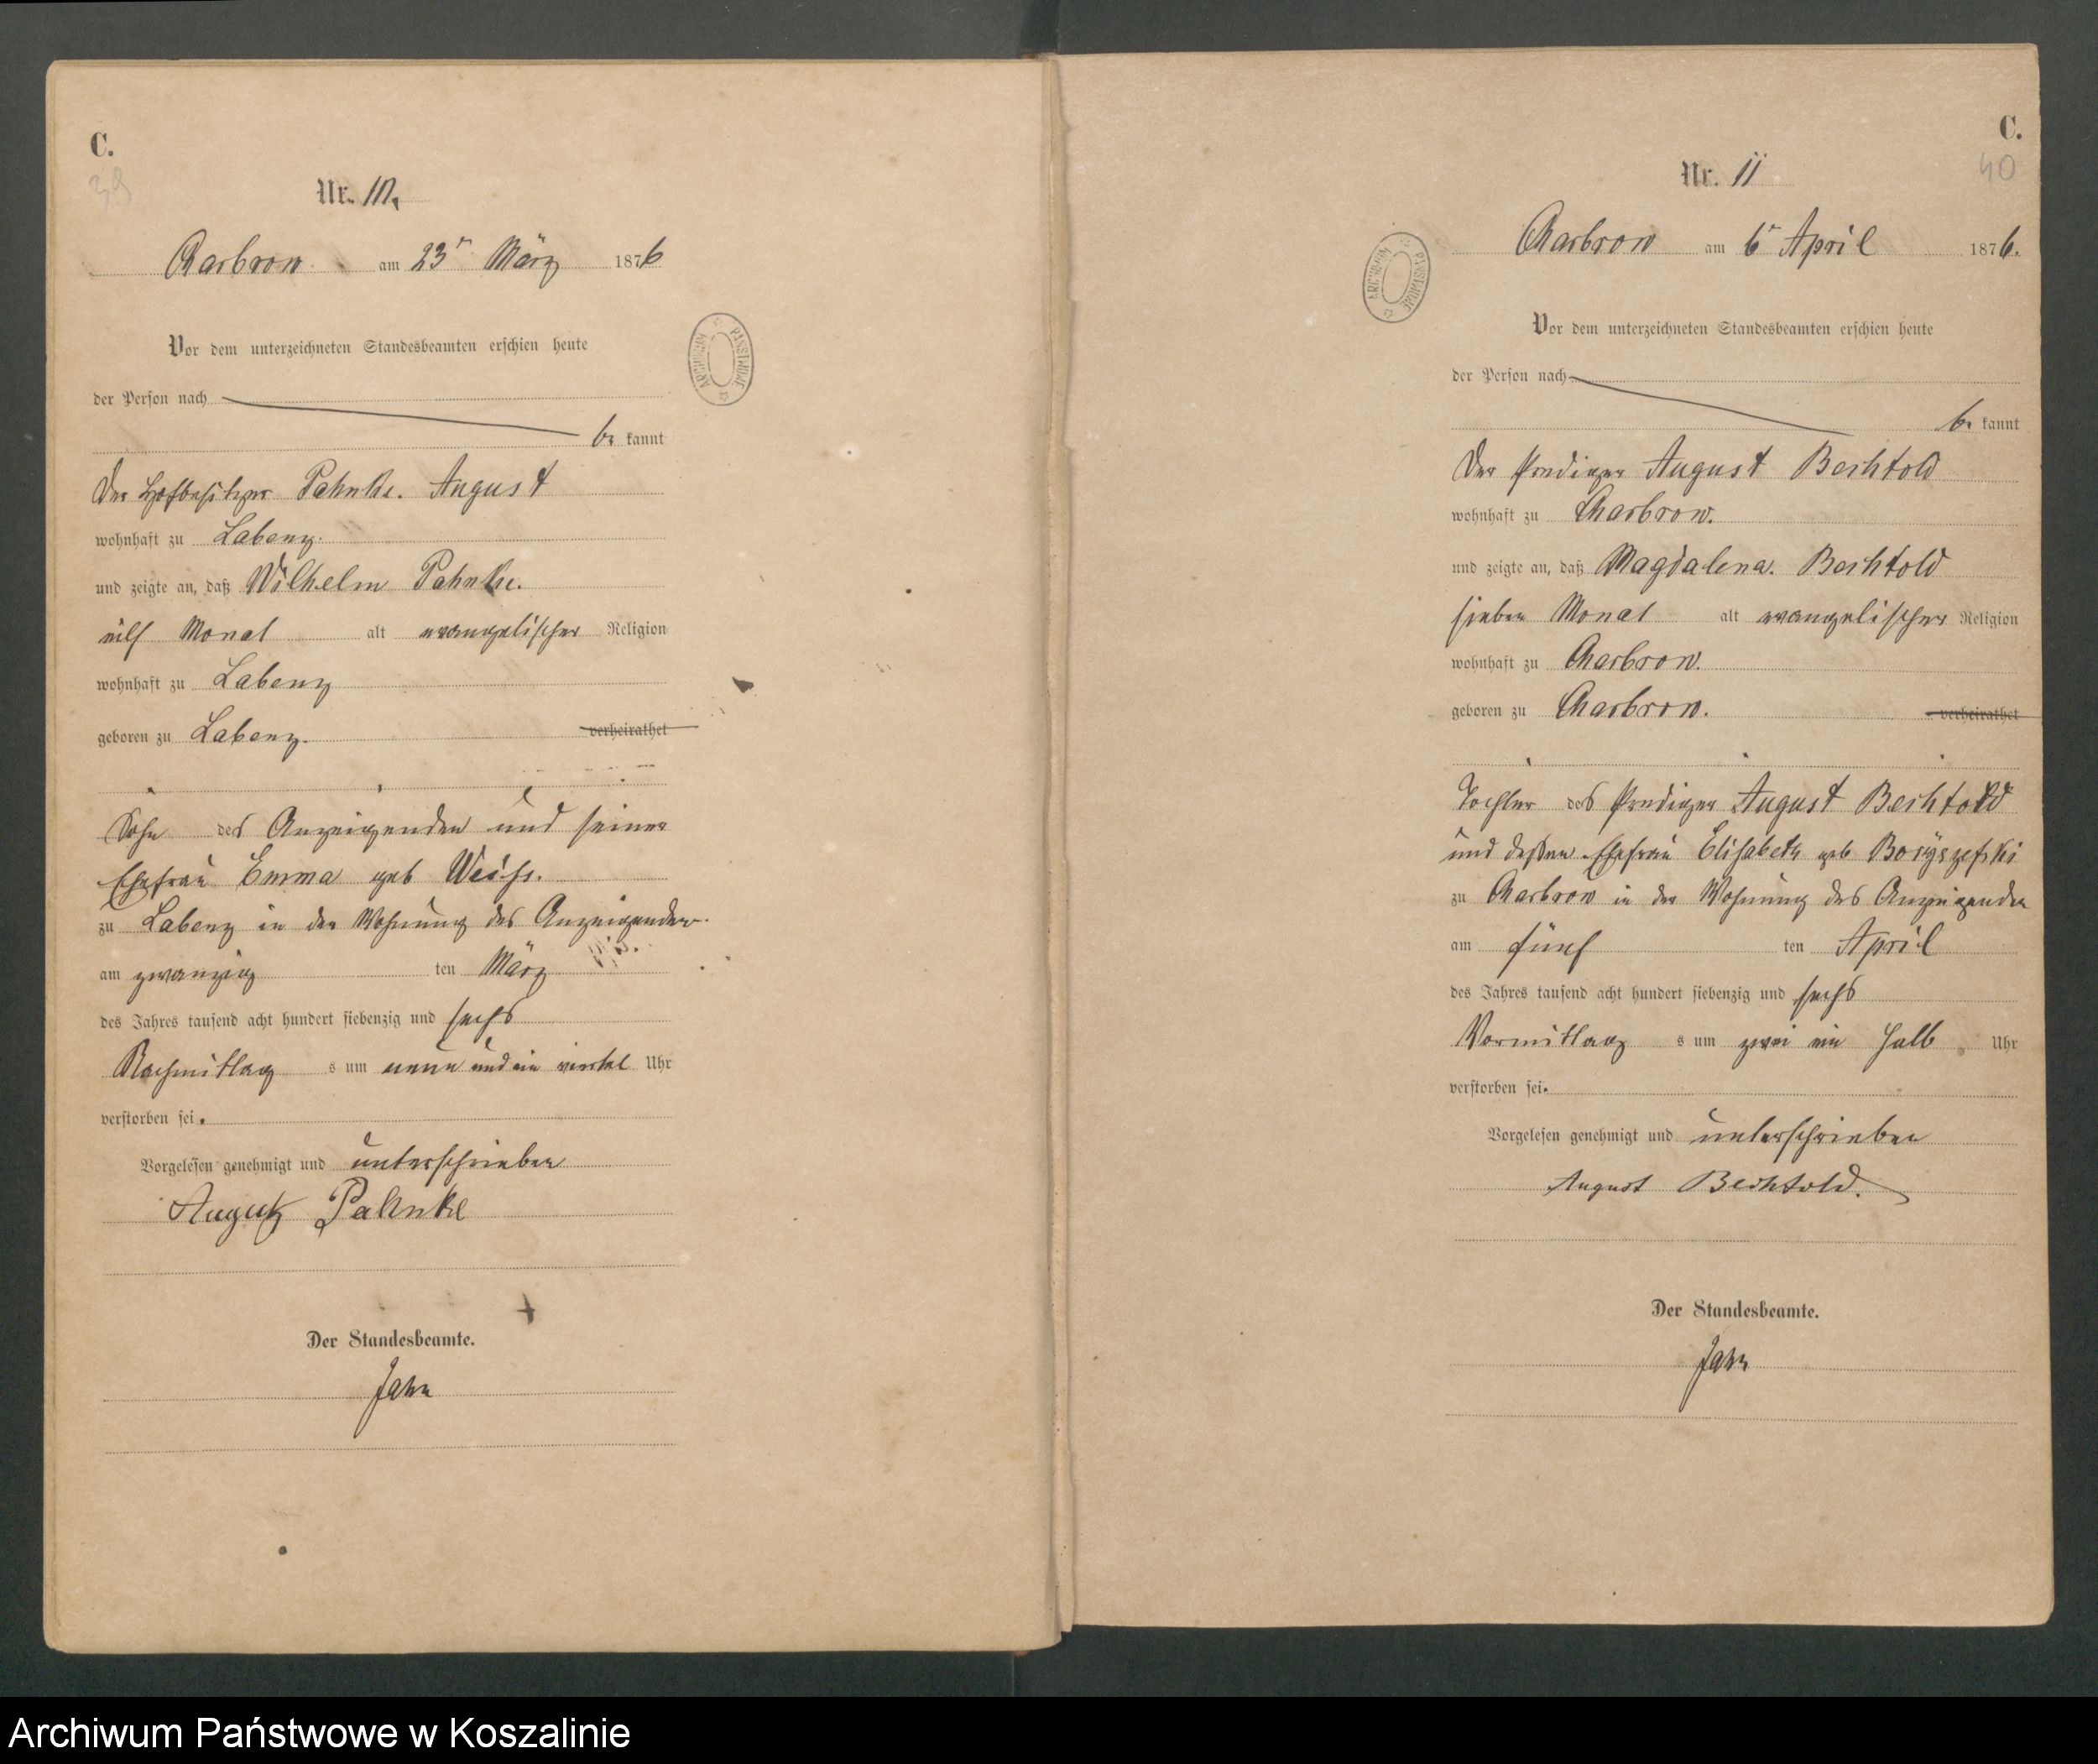 C.
39
Nr. 10.
Charbrow am 23n März 1876
Vor dem unterzeichneten Standesbeamten erschien heute
der Person nach
be kannt
Der Hofbesitzer Pahnke. August
wohnhaft zu Labenz.
und zeigte an, daß Wilhelm Pahnke.
eilf Monat alt evangelischer Religion
wohnhaft zu Labenz
geboren zu Labenz. verheirathet
Sohn des Anzeigenden und seiner
Ehefrau Emma geb Weiss.
zu Labenz in der Wohnung des Anzeigenden
am zwanzig ten März
des Jahres tausend acht hundert siebenzig und sechs
Nachmittag s um neun und ein viertel Uhr
verstorben sei.
Vorgelesen genehmigt und unterschrieben
August Pahnke
Der Standesbeamte.
Jahn
ARCHIWUM PAŃSTWOWE
C.
40
Nr. 11
Charbrow am 6n April 1876.
Vor dem unterzeichneten Standesbeamten erschien heute
der Person nach
be kannt
Der Prediger August Bechtold
wohnhaft zu Charbrow.
und zeigte an, daß Magdalena. Bechtold
sieben Monat alt evangelischer Religion
wohnhaft zu Charbrow.
geboren zu Charbrow. verheirathet
Tochter des Prediger August Bechtold
und dessen Ehefrau Elisabeth geb
zu Charbrow in der Wohnung des Anzeigenden
am fünf ten April
des Jahres tausend acht hundert siebenzig und sechs
Vormittag s um zwei ein halb Uhr
verstorben sei.
Vorgelesen genehmigt und unterschrieben
August Bechtold.
Der Standesbeamte.
Jahn
ARCHIWUM PAŃSTWOWE
Archiwum Państwowe w Koszalinie